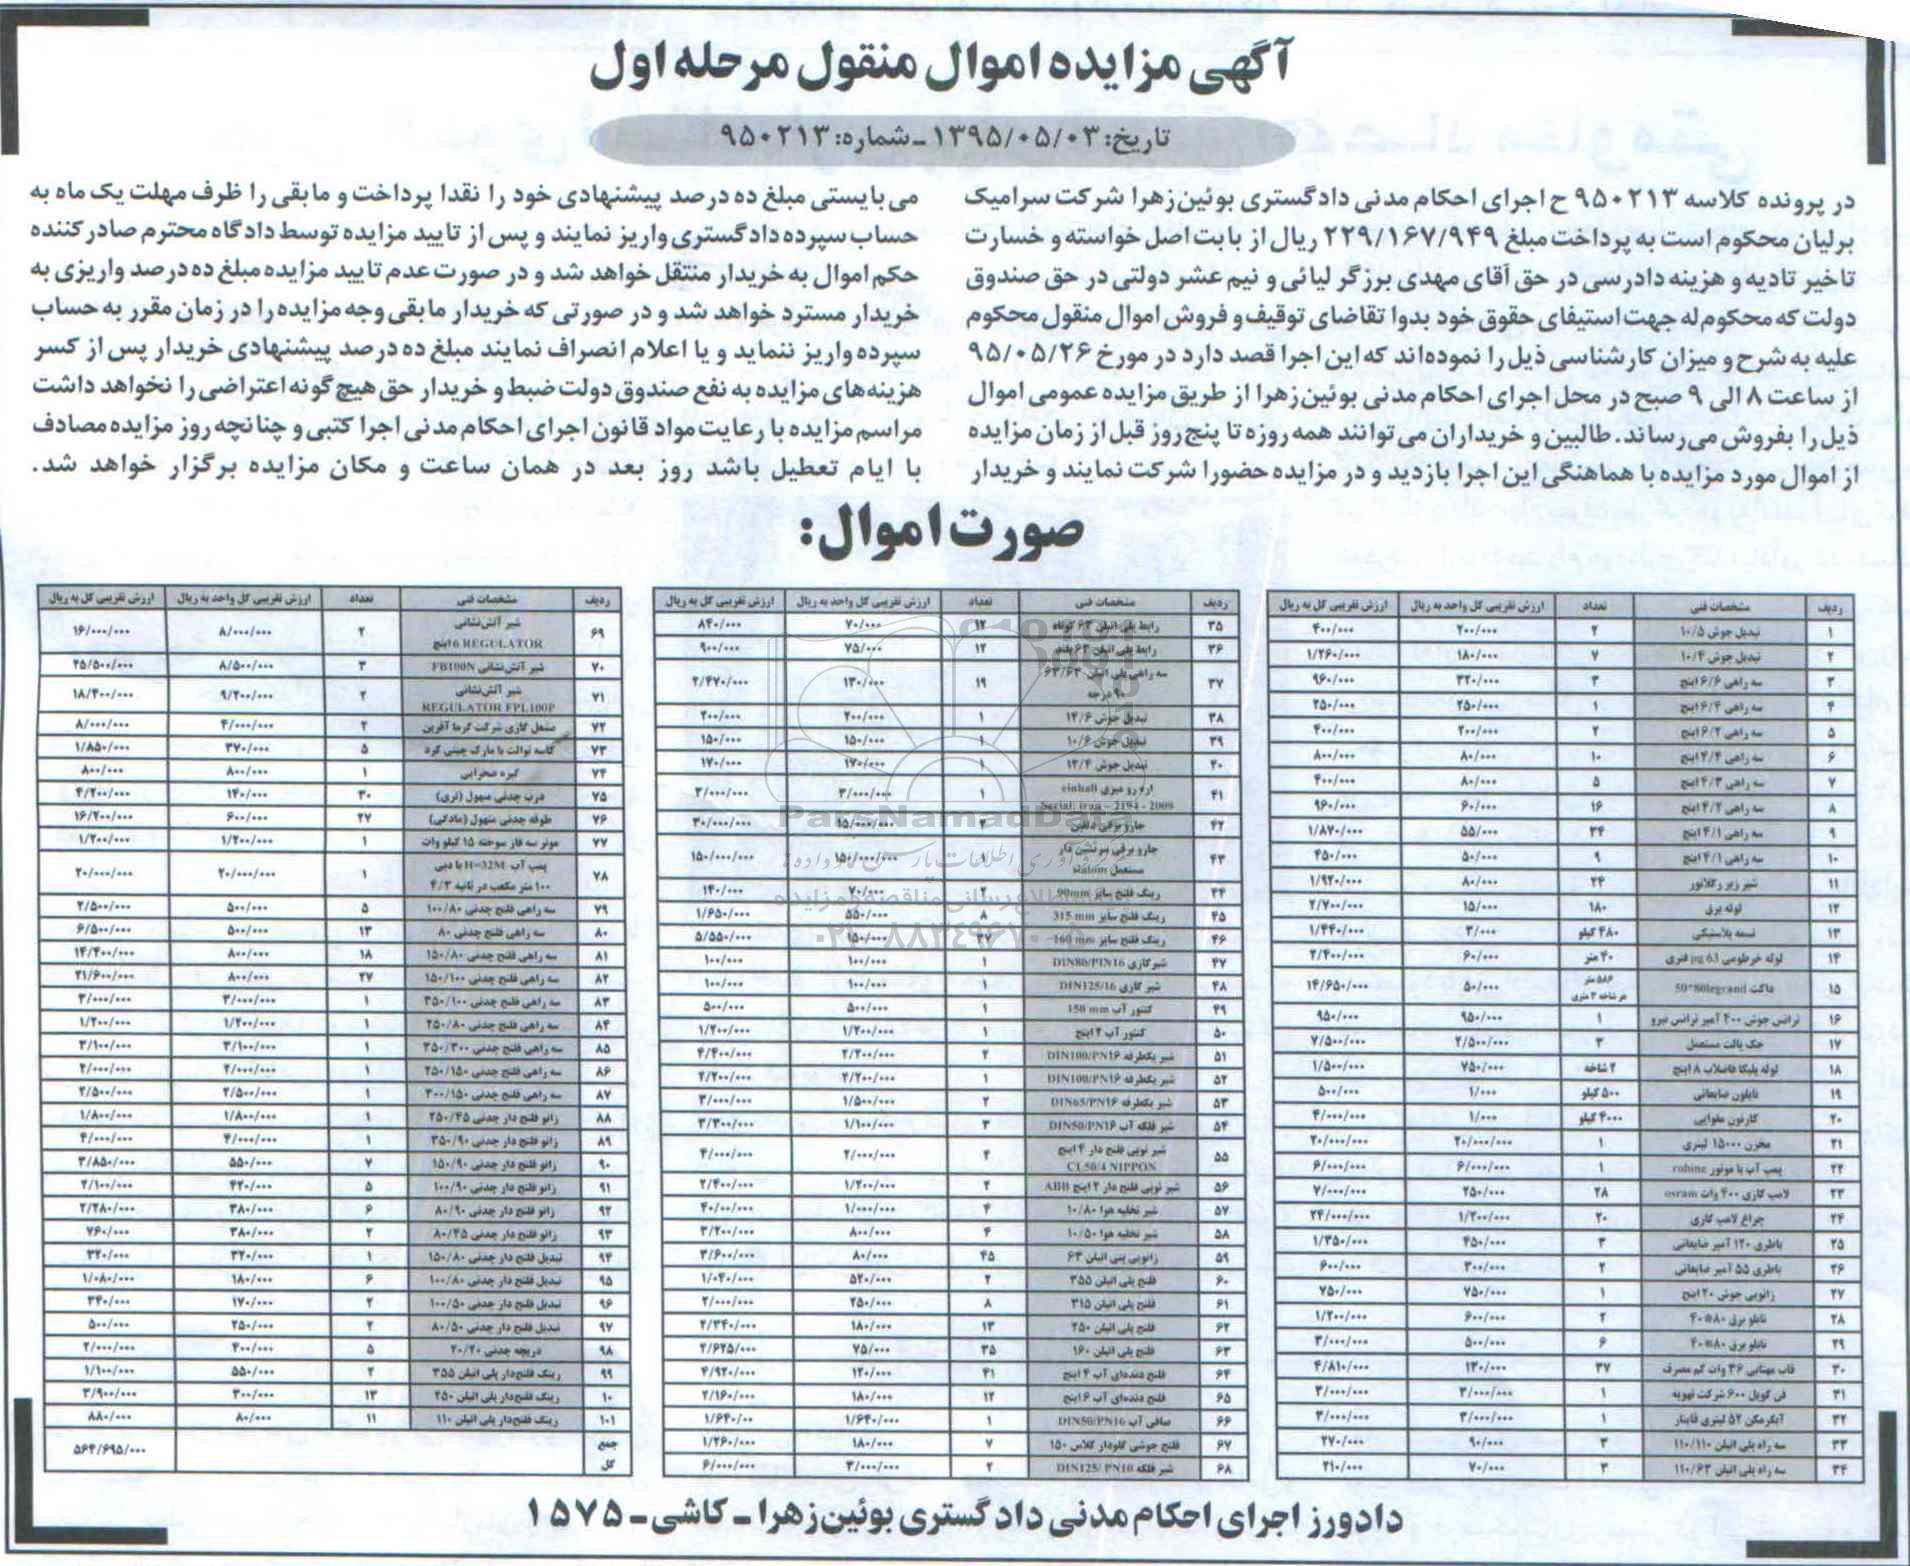 آگهی مزایده اموال منقول مرحله اول
تاریخ: ۱۳۹۵/۰۵/۰۳ - شماره: ۹۵۰۲۱۳
در پرونده کلاسه ۹۵۰۲۱۳ ح اجرای احکام مدنی دادگستری بوئین‌زهرا شرکت سرامیک
برلیان محکوم است به پرداخت مبلغ ۲۲۹/۱۶۷/۹۴۹ ریال از بابت اصل خواسته و خسارت
تاخیر تادیه و هزینه دادرسی در حق آقای مهدی برزگر لیائی و نیم عشر دولتی در حق صندوق
دولت که محکوم‌له جهت استیفای حقوق خود بدوا تقاضای توقیف و فروش اموال منقول محکوم
علیه به شرح و میزان کارشناسی ذیل را نموده‌اند که این اجرا قصد دارد در مورخ ۹۵/۰۵/۲۶
از ساعت ۸ الی ۹ صبح در محل اجرای احکام مدنی بوئین‌زهرا از طریق مزایده عمومی اموال
ذیل را بفروش می‌رساند. طالبین و خریداران می‌توانند همه روزه تا پنج روز قبل از زمان مزایده
از اموال مورد مزایده با هماهنگی این اجرا بازدید و در مزایده حضورا شرکت نمایند و خریدار
می‌بایستی مبلغ ده درصد پیشنهادی خود را نقدا پرداخت و مابقی را ظرف مهلت یک ماه به
حساب سپرده دادگستری واریز نمایند و پس از تایید مزایده توسط دادگاه محترم صادرکننده
حکم اموال به خریدار منتقل خواهد شد و در صورت عدم تایید مزایده مبلغ ده درصد واریزی به
خریدار مسترد خواهد شد و در صورتی که خریدار مابقی وجه مزایده را در زمان مقرر به حساب
سپرده واریز ننماید و یا اعلام انصراف نمایند مبلغ ده درصد پیشنهادی خریدار پس از کسر
هزینه‌های مزایده به نفع صندوق دولت ضبط و خریدار حق هیچ گونه اعتراضی را نخواهد داشت
مراسم مزایده با رعایت مواد قانون اجرای احکام مدنی اجرا کتبی و چنانچه روز مزایده مصادف
با ایام تعطیل باشد روز بعد در همان ساعت و مکان مزایده برگزار خواهد شد.
صورت اموال:
ردیف مشخصات فنی تعداد ارزش تقریبی کل واحد به ریال ارزش تقریبی کل به ریال
۱ تبدیل جوش ۱۰/۵ ۲ ۲۰۰/۰۰۰ ۴۰۰/۰۰۰
۲ تبدیل جوش ۱۰/۴ ۷ ۱۸۰/۰۰۰ ۱/۲۶۰/۰۰۰
۳ سه راهی ۶/۶ اینچ ۳ ۳۲۰/۰۰۰ ۹۶۰/۰۰۰
۴ سه راهی ۶/۴ اینچ ۱ ۲۵۰/۰۰۰ ۲۵۰/۰۰۰
۵ سه راهی ۶/۲ اینچ ۲ ۲۰۰/۰۰۰ ۴۰۰/۰۰۰
۶ سه راهی ۴/۴ اینچ ۱۰ ۸۰/۰۰۰ ۸۰۰/۰۰۰
۷ سه راهی ۴/۳ اینچ ۵ ۸۰/۰۰۰ ۴۰۰/۰۰۰
۸ سه راهی ۴/۲ اینچ ۱۶ ۶۰/۰۰۰ ۹۶۰/۰۰۰
۹ سه راهی ۴/۱ اینچ ۳۴ ۵۵/۰۰۰ ۱/۸۷۰/۰۰۰
۱۰ سه راهی ۴/۱ اینچ ۹ ۵۰/۰۰۰ ۴۵۰/۰۰۰
۱۱ شیر زیر رگلاتور ۲۴ ۸۰/۰۰۰ ۱/۹۲۰/۰۰۰
۱۲ لوله برق ۱۸۰ ۱۵/۰۰۰ ۲/۷۰۰/۰۰۰
۱۳ تسمه پلاستیکی ۴۸۰ کیلو ۳/۰۰۰ ۱/۴۴۰/۰۰۰
۱۴ لوله خرطومی pg 63 فنری ۴۰ متر ۶۰/۰۰۰ ۲/۴۰۰/۰۰۰
۱۵ داکت 50*80legrand ۵۰/۰۰۰ ۱۴/۶۵۰/۰۰۰
۱۶ ترانس جوش ۴۰۰ آمپر ترانس نیرو ۱ ۹۵۰/۰۰۰ ۹۵۰/۰۰۰
۱۷ جک پالت مستعمل ۳ ۲/۵۰۰/۰۰۰ ۷/۵۰۰/۰۰۰
۱۸ لوله پلیکا فاضلاب ۸ اینچ ۲ شاخه ۷۵۰/۰۰۰ ۱/۵۰۰/۰۰۰
۱۹ نایلون ضایعاتی ۵۰۰ کیلو ۱/۰۰۰ ۵۰۰/۰۰۰
۲۰ کارتون مقوایی ۴۰۰۰ کیلو ۱/۰۰۰ ۴/۰۰۰/۰۰۰
۲۱ مخزن ۱۵۰۰۰ لیتری ۱ ۲۰/۰۰۰/۰۰۰ ۲۰/۰۰۰/۰۰۰
۲۲ پمپ آب با موتور rohinc ۱ ۶/۰۰۰/۰۰۰ ۶/۰۰۰/۰۰۰
۲۳ لامپ گازی ۴۰۰ وات osram ۲۸ ۲۵۰/۰۰۰ ۷/۰۰۰/۰۰۰
۲۴ چراغ لامپ گازی ۲۰ ۱/۲۰۰/۰۰۰ ۲۴/۰۰۰/۰۰۰
۲۵ باطری ۱۲۰ آمپر ضایعاتی ۳ ۴۵۰/۰۰۰ ۱/۳۵۰/۰۰۰
۲۶ باطری ۵۵ آمپر ضایعاتی ۲ ۳۰۰/۰۰۰ ۶۰۰/۰۰۰
۲۷ زانویی جوش ۲۰ اینچ ۱ ۷۵۰/۰۰۰ ۷۵۰/۰۰۰
۲۸ تابلو برق ۸۰*۴۰ ۲ ۶۰۰/۰۰۰ ۱/۲۰۰/۰۰۰
۲۹ تابلو برق ۸۰*۴۰ ۶ ۵۰۰/۰۰۰ ۳/۰۰۰/۰۰۰
۳۰ قاب مهتابی ۳۶ وات کم مصرف ۳۷ ۱۳۰/۰۰۰ ۴/۸۱۰/۰۰۰
۳۱ فن کویل ۶۰۰ شرکت تهویه ۱ ۳/۰۰۰/۰۰۰ ۳/۰۰۰/۰۰۰
۳۲ آبگرمکن ۵۲ لیتری فاینار ۱ ۳/۰۰۰/۰۰۰ ۳/۰۰۰/۰۰۰
۳۳ سه راه پلی اتیلن ۱۱۰/۱۱۰ ۳ ۹۰/۰۰۰ ۲۷۰/۰۰۰
۳۴ سه راه پلی اتیلن ۱۱۰/۶۳ ۳ ۷۰/۰۰۰ ۲۱۰/۰۰۰
ردیف مشخصات فنی تعداد ارزش تقریبی کل واحد به ریال ارزش تقریبی کل به ریال
۳۵ رابط پلی اتیلن ۶۳ کوتاه ۱۲ ۷۰/۰۰۰ ۸۴۰/۰۰۰
۳۶ رابط پلی اتیلن ۶۳ بلند ۱۲ ۷۵/۰۰۰ ۹۰۰/۰۰۰
۳۷ سه راهی پلی اتیلن ۶۳/۶۳
۹۰ درجه ۱۹ ۱۳۰/۰۰۰ ۲/۴۷۰/۰۰۰
۳۸ تبدیل جوش ۱۴/۶ ۱ ۲۰۰/۰۰۰ ۲۰۰/۰۰۰
۳۹ تبدیل جوش ۱۰/۶ ۱ ۱۵۰/۰۰۰ ۱۵۰/۰۰۰
۴۰ تبدیل جوش ۱۴/۴ ۱ ۱۷۰/۰۰۰ ۱۷۰/۰۰۰
۴۱ اره رو میزی einhall
Serial: iran – 2194 - 2008 ۱ ۳/۰۰۰/۰۰۰ ۳/۰۰۰/۰۰۰
۴۲ جارو برقی دلفین ۲ ۱۵/۰۰۰/۰۰۰ ۳۰/۰۰۰/۰۰۰
۴۳ جارو برقی سرنشین دار
مستعمل ۱ ۱۵۰/۰۰۰/۰۰۰ ۱۵۰/۰۰۰/۰۰۰
۴۴ رینگ فلنج سایز 90mm ۲ ۷۰/۰۰۰ ۱۴۰/۰۰۰
۴۵ رینگ فلنج سایز 315 mm ۸ ۵۵۰/۰۰۰ ۱/۶۵۰/۰۰۰
۴۶ رینگ فلنج سایز 160 mm ۳۷ ۱۵۰/۰۰۰ ۵/۵۵۰/۰۰۰
۴۷ شیر گازی DIN80/PIN16 ۱ ۱۰۰/۰۰۰ ۱۰۰/۰۰۰
۴۸ شیر گازی DIN125/16 ۱ ۱۰۰/۰۰۰ ۱۰۰/۰۰۰
۴۹ کنتور آب 150 mm ۱ ۵۰۰/۰۰۰ ۵۰۰/۰۰۰
۵۰ کنتور آب ۴ اینچ ۱ ۱/۲۰۰/۰۰۰ ۱/۲۰۰/۰۰۰
۵۱ شیر یکطرفه DIN100/PN۱۶ ۲ ۲/۲۰۰/۰۰۰ ۴/۴۰۰/۰۰۰
۵۲ شیر یکطرفه DIN100/PN۱۶ ۱ ۲/۲۰۰/۰۰۰ ۲/۲۰۰/۰۰۰
۵۳ شیر یکطرفه DIN65/PN۱۶ ۲ ۱/۵۰۰/۰۰۰ ۳/۰۰۰/۰۰۰
۵۴ شیر فلکه آب DIN50/PN۱۶ ۳ ۱/۱۰۰/۰۰۰ ۳/۳۰۰/۰۰۰
۵۵ شیر توپی فلنج دار ۴ اینچ
CL50/4 NIPPON ۲ ۲/۰۰۰/۰۰۰ ۴/۰۰۰/۰۰۰
۵۶ شیر توپی فلنج دار ۲ اینچ ABB ۲ ۱/۲۰۰/۰۰۰ ۲/۴۰۰/۰۰۰
۵۷ شیر تخلیه هوا ۱۰/۸۰ ۴ ۱/۰۰۰/۰۰۰ ۴۰/۰۰۰/۰۰۰
۵۸ شیر تخلیه هوا ۱۰/۵۰ ۴ ۸۰۰/۰۰۰ ۳/۲۰۰/۰۰۰
۵۹ زانویی پنی اتیلن ۶۳ ۴۵ ۸۰/۰۰۰ ۳/۶۰۰/۰۰۰
۶۰ فلنج پلی اتیلن ۳۵۵ ۲ ۵۲۰/۰۰۰ ۱/۰۴۰/۰۰۰
۶۱ فلنج پلی اتیلن ۳۱۵ ۸ ۲۵۰/۰۰۰ ۲/۰۰۰/۰۰۰
۶۲ فلنج پلی اتیلن ۲۵۰ ۱۳ ۱۸۰/۰۰۰ ۲/۳۴۰/۰۰۰
۶۳ فلنج پلی اتیلن ۱۶۰ ۳۵ ۷۵/۰۰۰ ۲/۶۲۵/۰۰۰
۶۴ فلنج دنده‌ای آب ۴ اینچ ۴۱ ۱۲۰/۰۰۰ ۴/۹۲۰/۰۰۰
۶۵ فلنج دنده‌ای آب ۶ اینچ ۱۲ ۱۸۰/۰۰۰ ۲/۱۶۰/۰۰۰
۶۶ صافی آب DIN50/PN16 ۱ ۱/۶۴۰/۰۰۰ ۱/۶۴۰/۰۰
۶۷ فلنج جوشی گلودار کلاس ۱۵۰ ۷ ۱۸۰/۰۰۰ ۱/۲۶۰/۰۰۰
۶۸ شیر فلکه DIN125/ PN10 ۲ ۳/۰۰۰/۰۰۰ ۶/۰۰۰/۰۰۰
ردیف مشخصات فنی تعداد ارزش تقریبی کل واحد به ریال ارزش تقریبی کل به ریال
۶۹ شیر آتش‌نشانی
REGULATOR ۱۶اینچ ۲ ۸/۰۰۰/۰۰۰ ۱۶/۰۰۰/۰۰۰
۷۰ شیر آتش‌نشانی FB100N ۳ ۸/۵۰۰/۰۰۰ ۲۵/۵۰۰/۰۰۰
۷۱ شیر آتش‌نشانی
REGULATOR FPL100P ۲ ۹/۲۰۰/۰۰۰ ۱۸/۴۰۰/۰۰۰
۷۲ مشعل گازی شرکت گرما آفرین ۲ ۴/۰۰۰/۰۰۰ ۸/۰۰۰/۰۰۰
۷۳ کاسه توالت با مارک چینی کرد ۵ ۳۷۰/۰۰۰ ۱/۸۵۰/۰۰۰
۷۴ گیره صحرایی ۱ ۸۰۰/۰۰۰ ۸۰۰/۰۰۰
۷۵ درب چدنی منهول (نری) ۳۰ ۱۴۰/۰۰۰ ۴/۲۰۰/۰۰۰
۷۶ طوقه چدنی منهول (مادگی) ۲۷ ۶۰۰/۰۰۰ ۱۶/۲۰۰/۰۰۰
۷۷ موتور سه فاز سوخته ۱۵ کیلو وات ۱ ۱/۲۰۰/۰۰۰ ۱/۲۰۰/۰۰۰
۷۸ پمپ آب H=32M با دبی
۱۰۰ متر مکعب در ثانیه ۴/۳ ۱ ۲۰/۰۰۰/۰۰۰ ۲۰/۰۰۰/۰۰۰
۷۹ سه راهی فلنج چدنی ۱۰۰/۸۰ ۵ ۵۰۰/۰۰۰ ۲/۵۰۰/۰۰۰
۸۰ سه راهی فلنج چدنی ۸۰ ۱۳ ۵۰۰/۰۰۰ ۶/۵۰۰/۰۰۰
۸۱ سه راهی فلنج چدنی ۱۵۰/۸۰ ۱۸ ۸۰۰/۰۰۰ ۱۴/۴۰۰/۰۰۰
۸۲ سه راهی فلنج چدنی ۱۵۰/۱۰۰ ۲۷ ۸۰۰/۰۰۰ ۲۱/۶۰۰/۰۰۰
۸۳ سه راهی فلنج چدنی ۳۵۰/۱۰۰ ۱ ۳/۰۰۰/۰۰۰ ۳/۰۰۰/۰۰۰
۸۴ سه راهی فلنج چدنی ۲۵۰/۸۰ ۱ ۱/۲۰۰/۰۰۰ ۱/۲۰۰/۰۰۰
۸۵ سه راهی فلنج چدنی ۳۵۰/۳۰۰ ۱ ۳/۱۰۰/۰۰۰ ۳/۱۰۰/۰۰۰
۸۶ سه راهی فلنج چدنی ۲۵۰/۱۵۰ ۱ ۲/۰۰۰/۰۰۰ ۲/۰۰۰/۰۰۰
۸۷ سه راهی فلنج چدنی ۳۰۰/۱۵۰ ۱ ۲/۵۰۰/۰۰۰ ۲/۵۰۰/۰۰۰
۸۸ زانو فلنج دار چدنی ۲۵۰/۴۵ ۱ ۱/۸۰۰/۰۰۰ ۱/۸۰۰/۰۰۰
۸۹ زانو فلنج دار چدنی ۳۵۰/۹۰ ۱ ۴/۰۰۰/۰۰۰ ۴/۰۰۰/۰۰۰
۹۰ زانو فلنج دار چدنی ۱۵۰/۹۰ ۷ ۵۵۰/۰۰۰ ۳/۸۵۰/۰۰۰
۹۱ زانو فلنج دار چدنی ۱۰۰/۹۰ ۵ ۴۲۰/۰۰۰ ۲/۱۰۰/۰۰۰
۹۲ زانو فلنج دار چدنی ۸۰/۹۰ ۶ ۳۸۰/۰۰۰ ۲/۲۸۰/۰۰۰
۹۳ زانو فلنج دار چدنی ۸۰/۴۵ ۲ ۳۸۰/۰۰۰ ۷۶۰/۰۰۰
۹۴ تبدیل فلنج دار چدنی ۱۵۰/۸۰ ۱ ۳۲۰/۰۰۰ ۳۲۰/۰۰۰
۹۵ تبدیل فلنج دار چدنی ۱۰۰/۸۰ ۶ ۱۸۰/۰۰۰ ۱/۰۸۰/۰۰۰
۹۶ تبدیل فلنج دار چدنی ۱۰۰/۵۰ ۲ ۱۷۰/۰۰۰ ۳۴۰/۰۰۰
۹۷ تبدیل فلنج دار چدنی ۸۰/۵۰ ۲ ۲۵۰/۰۰۰ ۵۰۰/۰۰۰
۹۸ دریچه چدنی ۲۰/۲۰ ۵ ۴۰۰/۰۰۰ ۲/۰۰۰/۰۰۰
۹۹ رینگ فلنج‌دار پلی اتیلن ۳۵۵ ۲ ۵۵۰/۰۰۰ ۱/۱۰۰/۰۰۰
۱۰ رینگ فلنج‌دار پلی اتیلن ۲۵۰ ۱۳ ۳۰۰/۰۰۰ ۳/۹۰۰/۰۰۰
۱۰۱ رینگ فلنج‌دار پلی اتیلن ۱۱۰ ۱۱ ۸۰/۰۰۰ ۸۸۰/۰۰۰
جمع کل ۵۶۴/۶۹۵/۰۰۰
دادورز اجرای احکام مدنی دادگستری بوئین‌زهرا - کاشی - ۱۵۷۵
ParsNamadData
۰۲۱-۸۸۳۴۹۶۷۰-۵